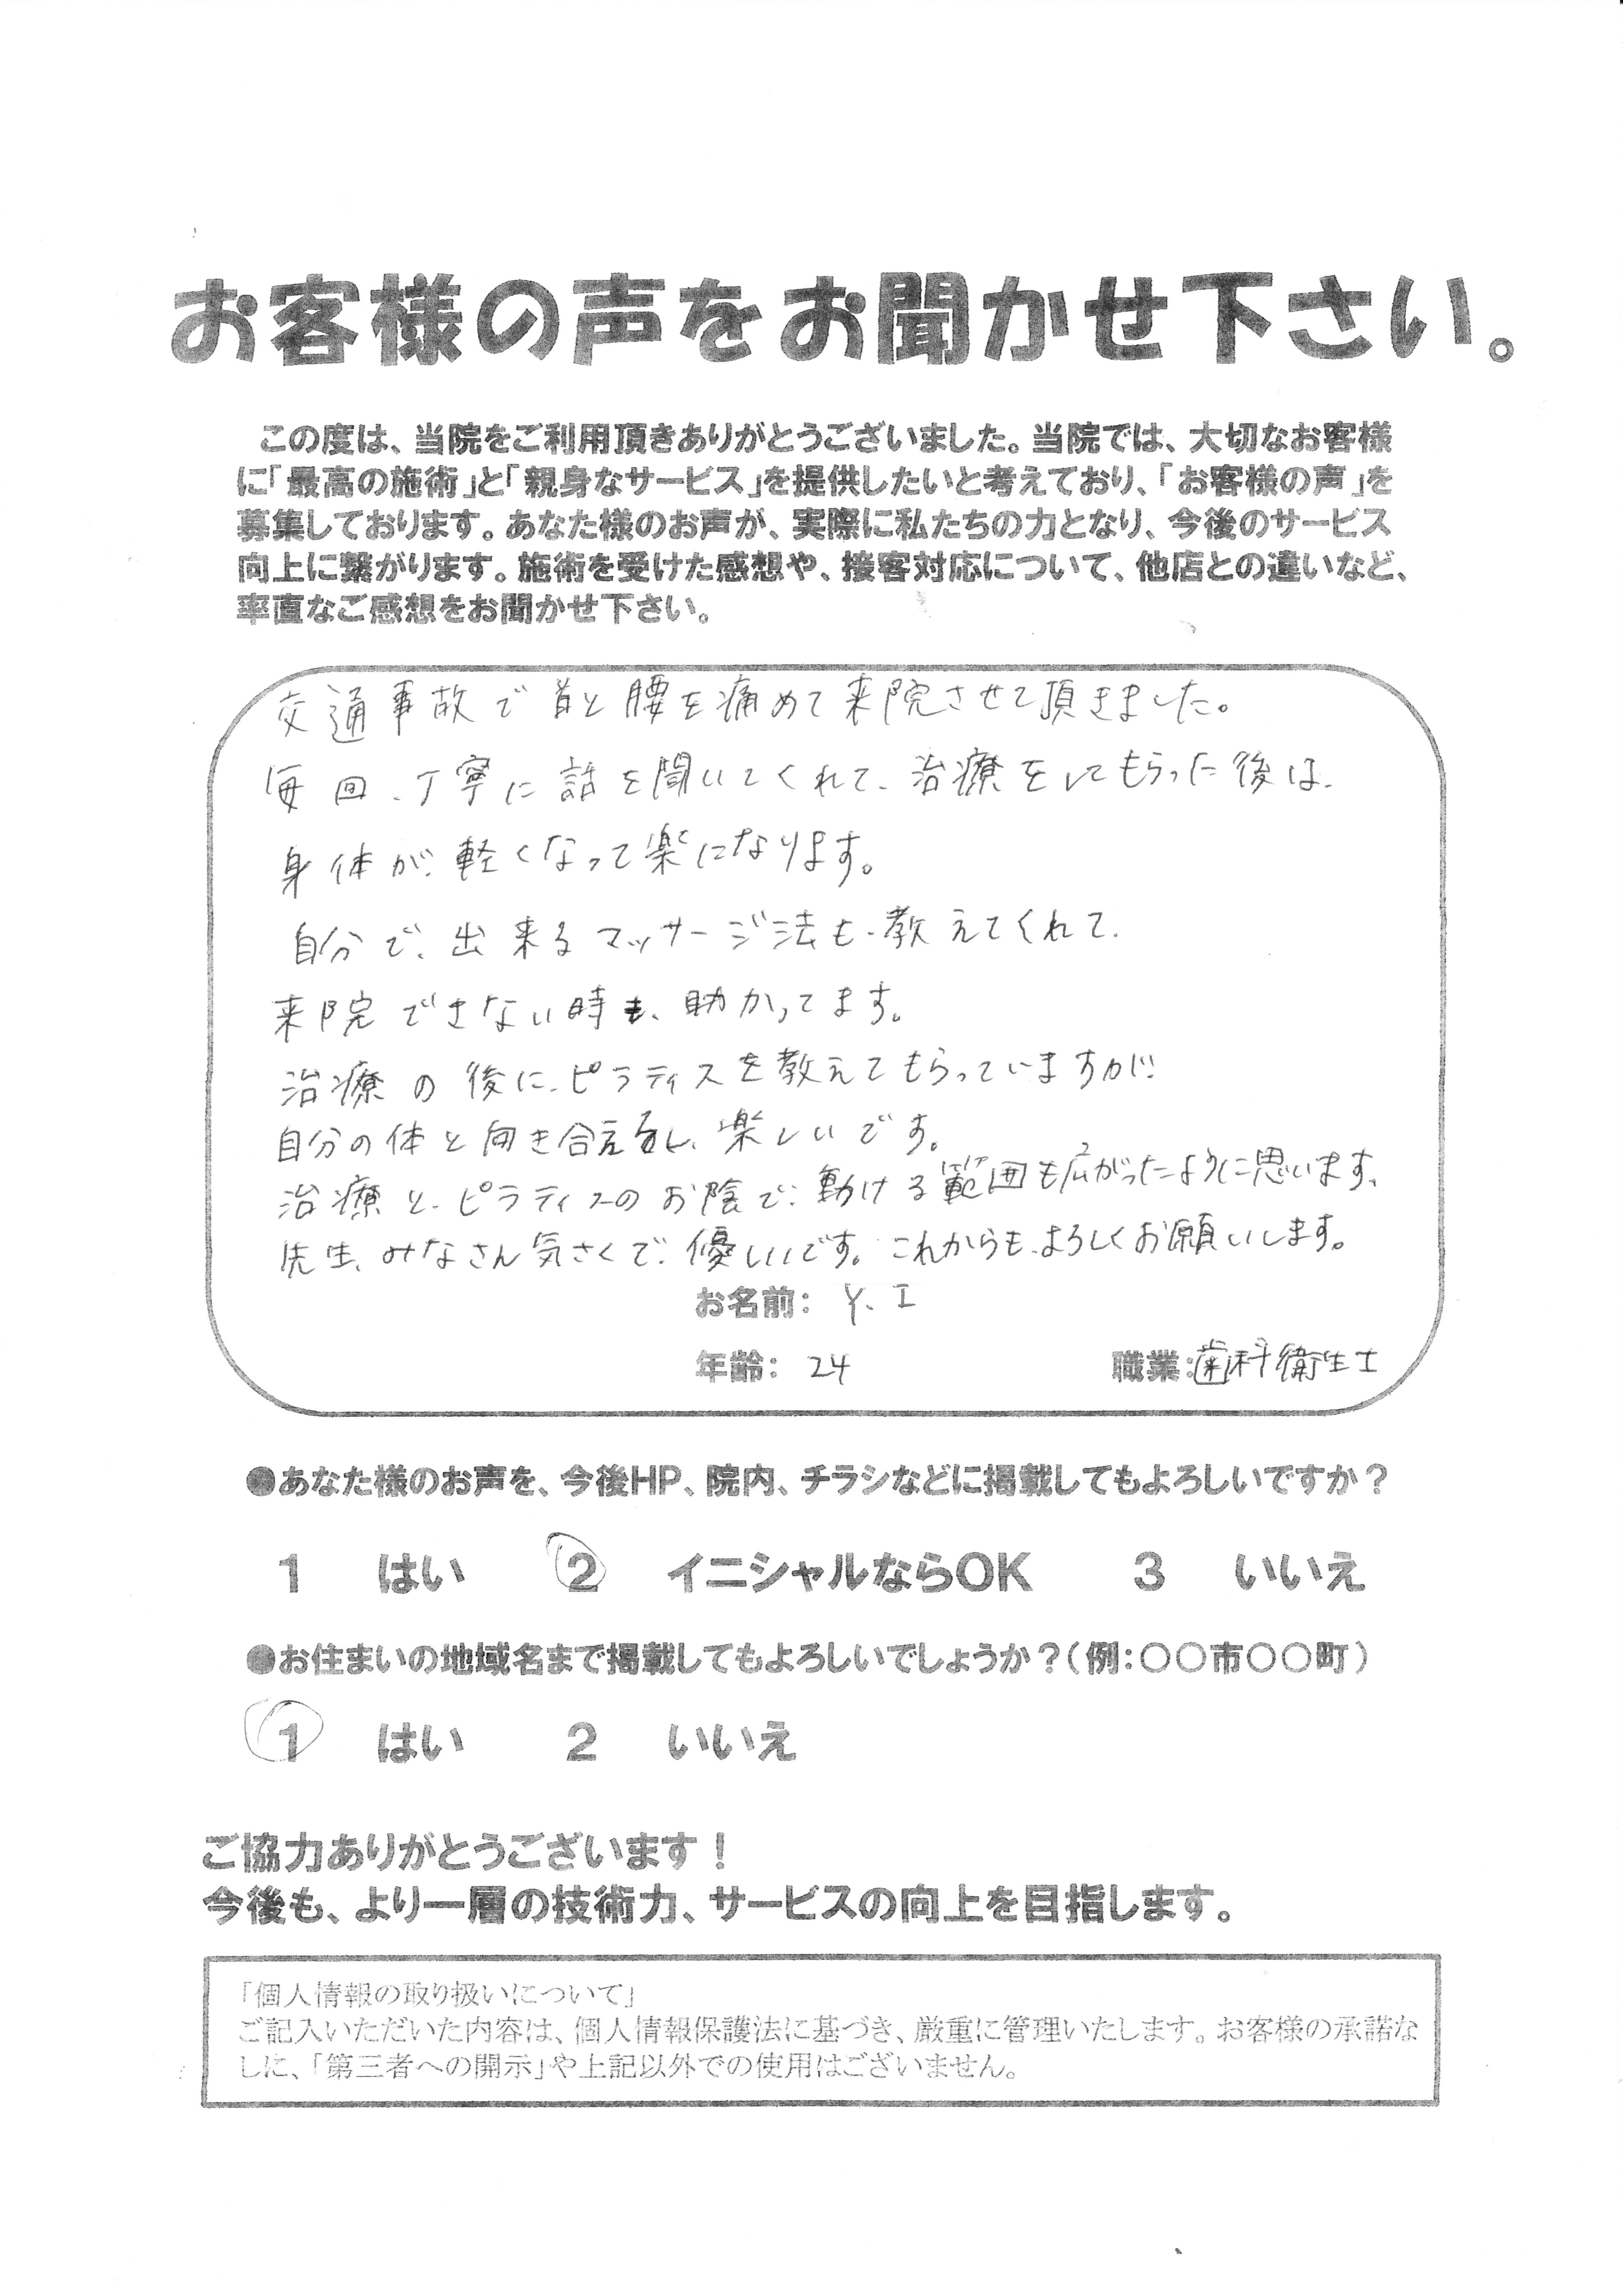 お客様の声をお聞かせ下さい。
この度は、当院をご利用頂きありがとうございました。当院では、大切なお客様
に「最高の施術」と「親身なサービス」を提供したいと考えており、「お客様の声」を
募集しております。あなた様のお声が、実際に私たちの力となり、今後のサービス
向上に繋がります。施術を受けた感想や、接客対応について、他店との違いなど、
率直なご感想をお聞かせ下さい。
交通事故で首と腰を痛めて来院させて頂きました。
毎回、丁寧に話を聞いてくれて、治療をしてもらった後は、
身体が、軽くなって楽になります。
自分で、出来るマッサージ法も、教えてくれて、
来院できない時も、助かってます。
治療の後に、ピラティスを教えてもらっていますが、
自分の体と向き合えるし、楽しいです。
治療と、ピラティスのお陰で、動ける範囲も広がったように思います。
先生、みなさん気さくで、優しいです。これからも、よろしくお願いします。
お名前： Y.I
年齢： 24 職業：歯科衛生士
●あなた様のお声を、今後HP、院内、チラシなどに掲載してもよろしいですか？
1 はい 2 イニシャルならOK 3 いいえ
●お住まいの地域名まで掲載してもよろしいでしょうか？（例：〇〇市〇〇町）
1 はい 2 いいえ
ご協力ありがとうございます！
今後も、より一層の技術力、サービスの向上を目指します。
「個人情報の取り扱いについて」
ご記入いただいた内容は、個人情報保護法に基づき、厳重に管理いたします。お客様の承諾な
しに、「第三者への開示」や上記以外での使用はございません。